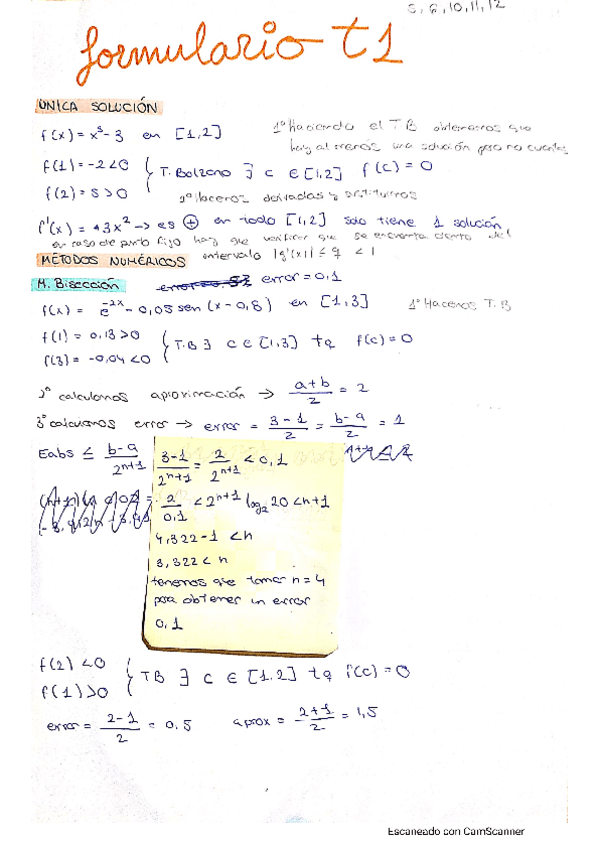 5, 6, 10, 11, 12
formulario t1
UNICA SOLUCIÓN
f(x) = x³ - 3 en [1,2]
1º Haciendo el TB obtenemos que
hay al menos una solución pero no cuantas
f(1) = -2 < 0
f(2) = 5 > 0
T. Bolzano ∃ c ∈ [1,2] f(c) = 0
2º Hacemos derivadas y sustituimos
f'(x) = +3x² → es ⊕ en todo [1,2] solo tiene 1 solución
en caso de punto fijo hay que verificar que se encuentra dentro del
intervalo |g'(x)| ≤ q < 1
MÉTODOS NUMÉRICOS
M. Bisección
error = 0,1
f(x) = e^-2x - 0,05 sen (x - 0,8) en [1,3]
1º Hacemos T.B
f(1) = 0,13 > 0
f(3) = -0,04 < 0
T.B ∃ c ∈ [1,3] tq f(c) = 0
2º calculamos aproximación → a+b/2 = 2
3º calculamos error → error = 3-1/2 = b-a/2 = 1
Eabs ≤ b-a/2^n+1
3-1/2^n+1 = 2/2^n+1 < 0,1
2/0,1 < 2^n+1 log₂20 < n+1
4,322 - 1 < n
3,322 < n
tenemos que tomar n = 4
para obtener un error
0,1
f(2) < 0
f(1) > 0
TB ∃ c ∈ [1,2] tq f(c) = 0
error = 2-1/2 = 0.5
aprox = 2+1/2 = 1,5
Escaneado con CamScanner